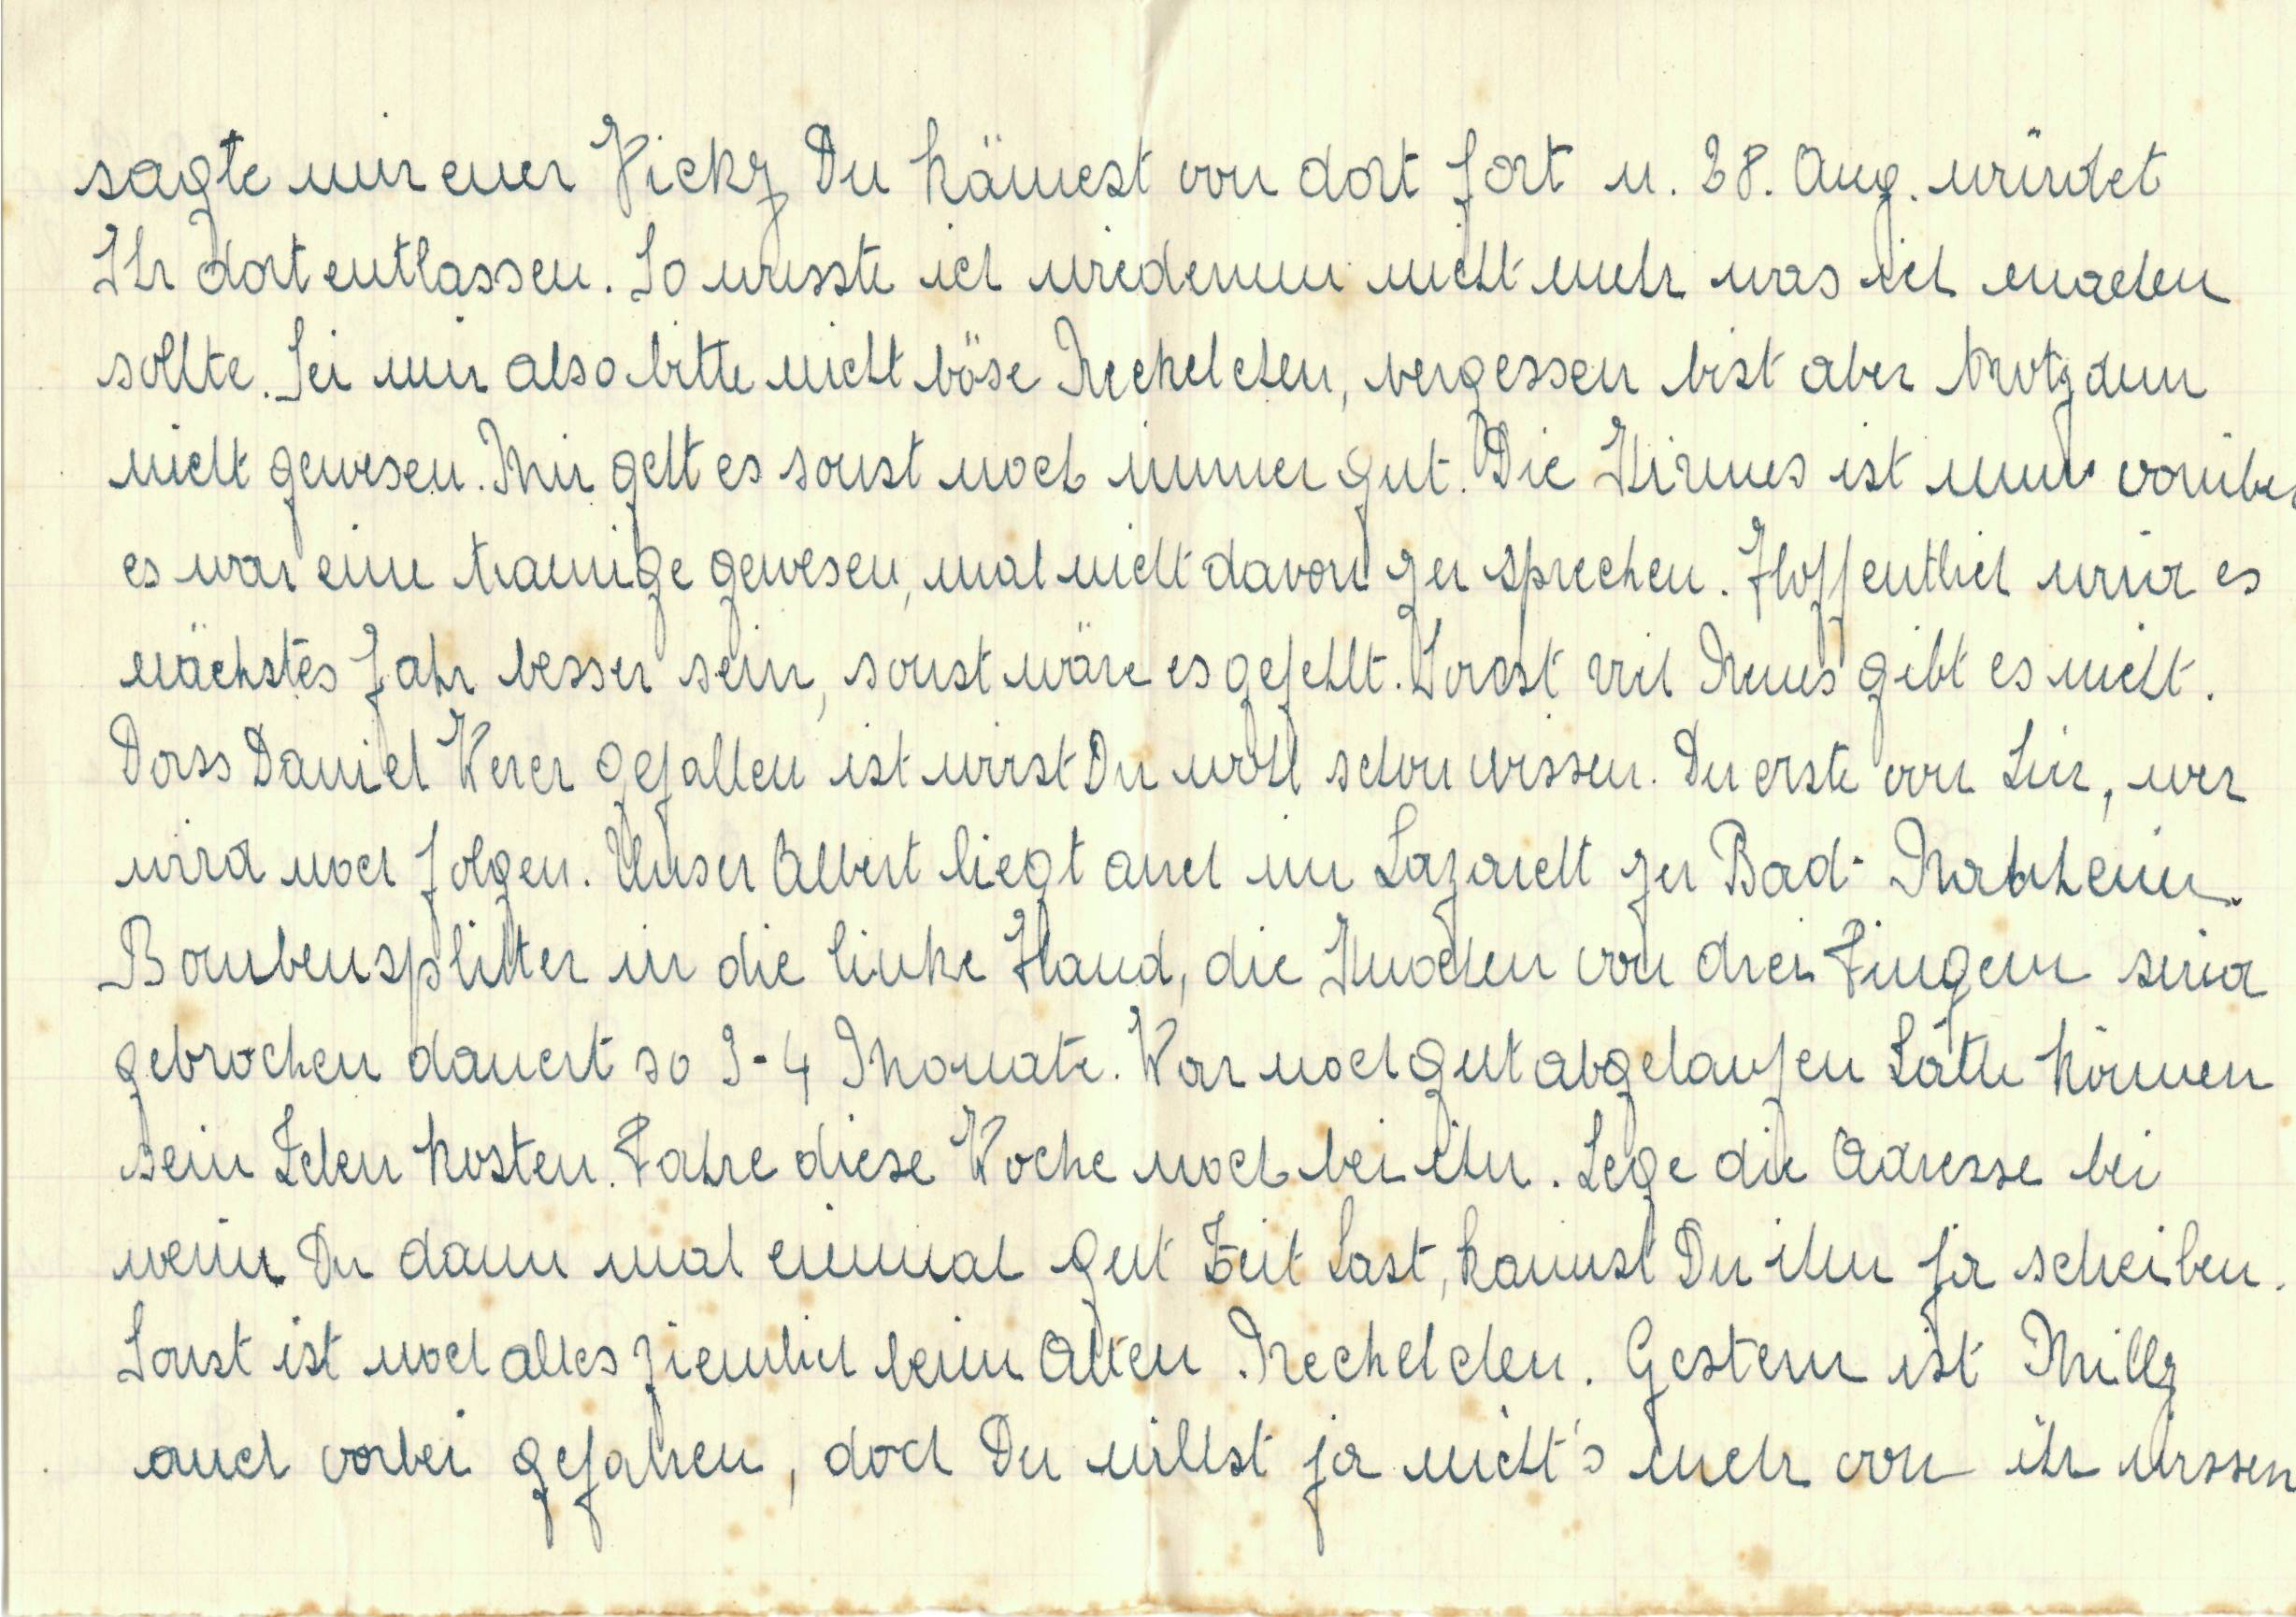 sagte mir euer Vicky Du kämest von dort fort u. 28. Aug. würdet
Ihr dort entlassen. So wusste ich wiederum nicht mehr was ich machen
sollte. Sei mir also bitte nicht böse Meckelchen, vergessen bist aber trotzdem
nicht gewesen. Mir geht es sonst noch immer gut. Die Kirmes ist nun vorüber
es war eine traurige gewesen, mal nicht davon zu sprechen. Hoffentlich wird es
nächstes Jahr besser sein, sonst wäre es gefehlt. Sonst viel Neues gibt es nicht.
Dass Daniel gefallen ist wirst Du wohl schon wissen. Der erste von hier, wer
wird noch folgen. Unser Albert liegt auch im Lazarett zu Bad-
Bombensplitter in die linke Hand, die Knochen von drei Fingern sind
gebrochen dauert so 3-4 Monate. War noch gut abgelaufen hätte können
sein Leben kosten. Fahre diese Woche noch bei ihn. Lege die Adresse bei
wenn Du dann mal einmal gut Zeit hast, kannst Du ihm ja scheiben.
Sonst ist noch alles ziemlich beim Alten Meckelchen. Gestern ist Milly
auch vorbei gefahren, doch Du willst ja nicht's mehr von ihr wissen